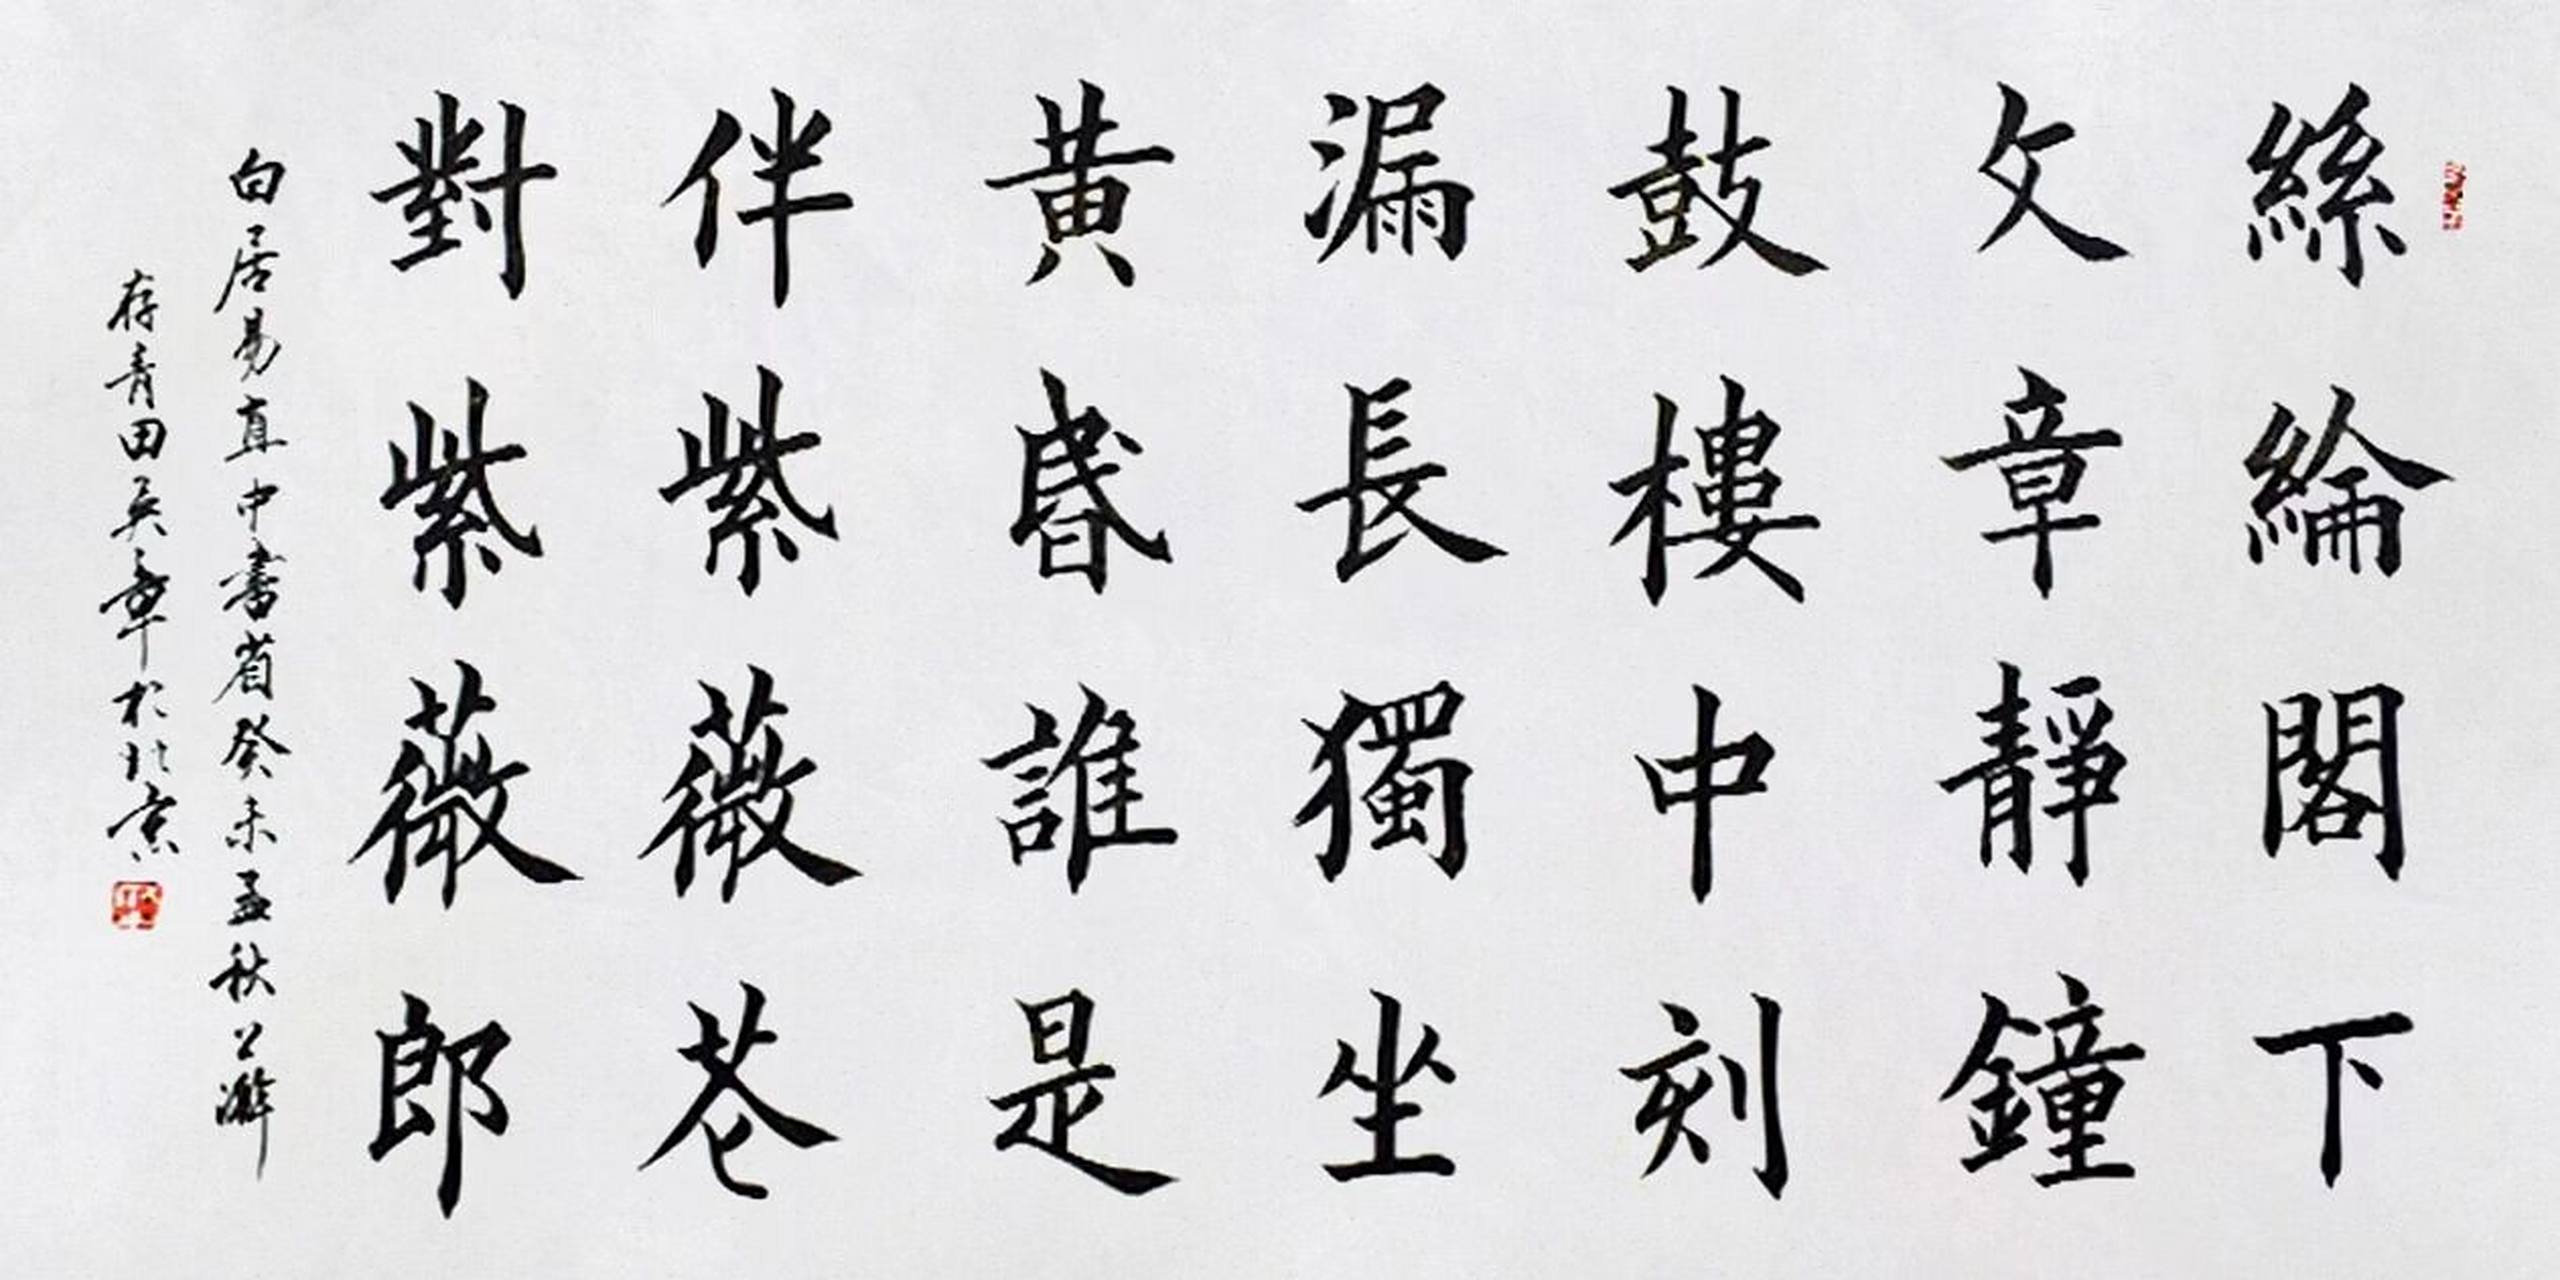 絲綸閣下
文章靜鐘
鼓樓中刻
漏長獨坐
黃昏誰是
伴紫薇花
對紫薇郎
白居易直中書省癸未孟秋以澣
存青田吳章於北京